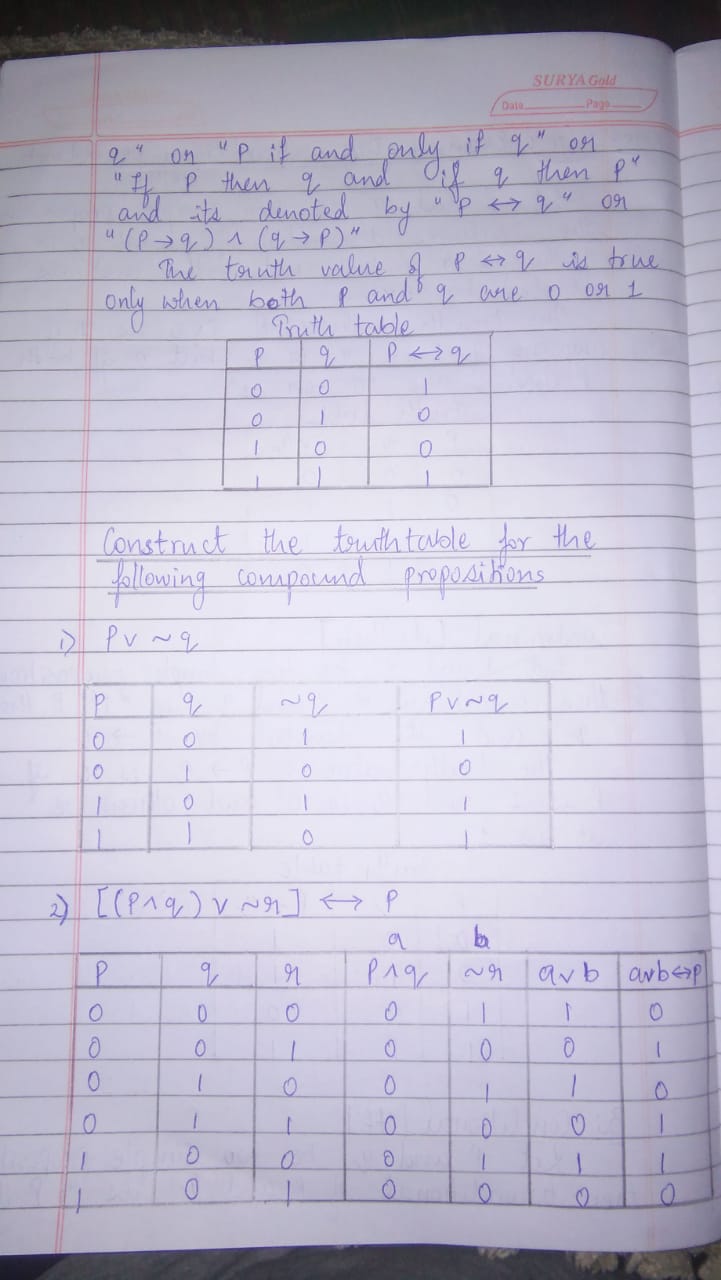 SURYA Gold
Date Page
q" or "P if and only if q" or
"If P then q and if q then P"
and its denoted by "P ↔ q" or
"(P → q) ∧ (q → P)"
The truth value of P ↔ q is true
only when both P and q are 0 or 1
Truth table
P q P ↔ q
0 0 1
0 1 0
1 0 0
1 1 1
Construct the truthtable for the
following compound propositions
1) P v ~q
P q ~q P v ~q
0 0 1 1
0 1 0 0
1 0 1 1
1 1 0 1
2) [(P ∧ q) v ~r] ↔ P
a b
P q r P ∧ q ~r a v b avb ↔ p
0 0 0 0 1 1 0
0 0 1 0 0 0 1
0 1 0 0 1 1 0
0 1 1 0 0 0 1
1 0 0 0 1 1 1
1 0 1 0 0 0 0